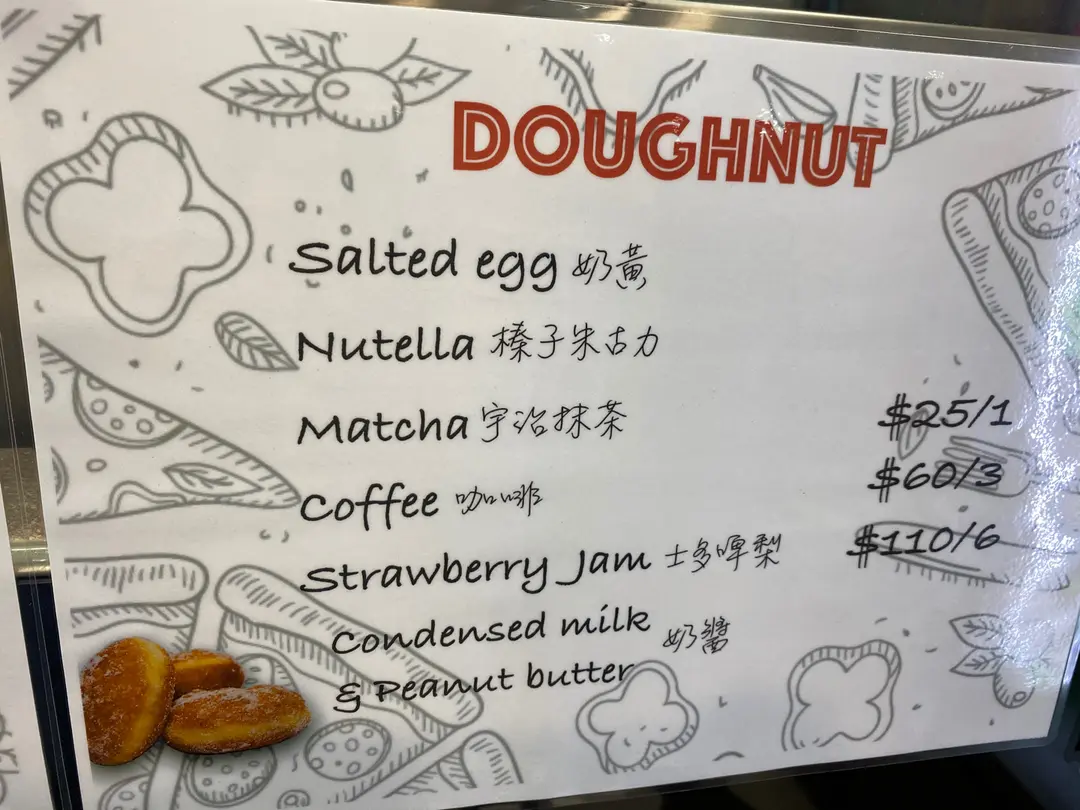 DOUGHNUT
Salted egg 奶黃
Nutella 榛子朱古力
Matcha 宇治抹茶
$25/1
$60/3
Coffee 咖啡
$110/6
Strawberry Jam 士多啤梨
Condensed milk
& Peanut butter 奶醬